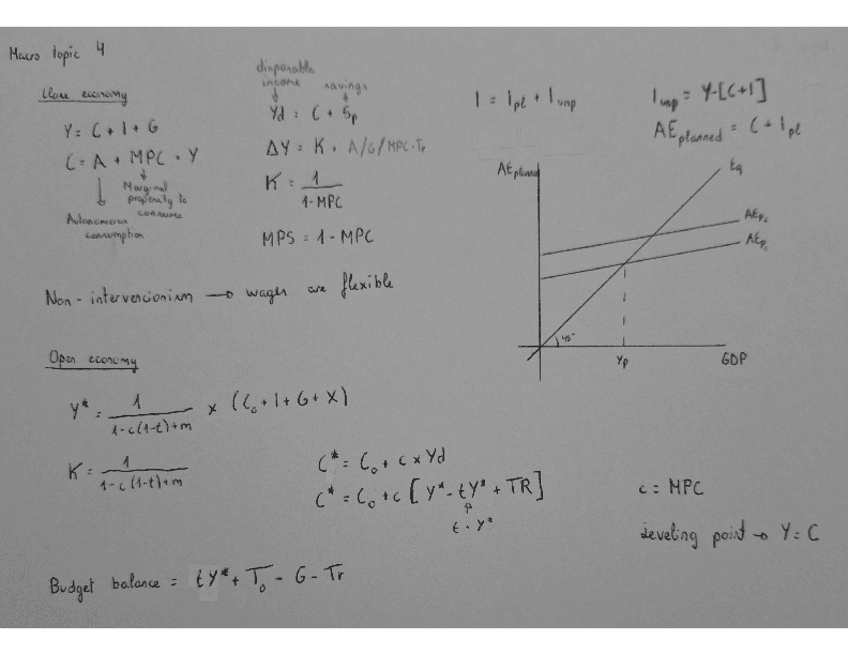 Macro topic 4
Close economy
Y = C + I + G
C = A + MPC · Y
Marginal propensity to consume
Autonomous consumption
disponable income
savings
Yd = C + Sp
ΔY = K · A/G/MPC·Tr
K = 1 / 1-MPC
MPS = 1 - MPC
I = Ipl + Iunp
Iunp = Y-[C+I]
AEplanned = C + Ipl
AEplanned
Eq
AEp₂
AEp₁
45°
Yp
GDP
Non-intervencionism → wages are flexible
Open economy
Y* = 1 / 1-c(1-t)+m × (C₀ + I + G + X)
K = 1 / 1-c(1-t)+m
C* = C₀ + c × Yd
C* = C₀ + c [Y* - tY* + TR]
t · Y*
c = MPC
leveling point → Y = C
Budget balance = tY* + T₀ - G - Tr